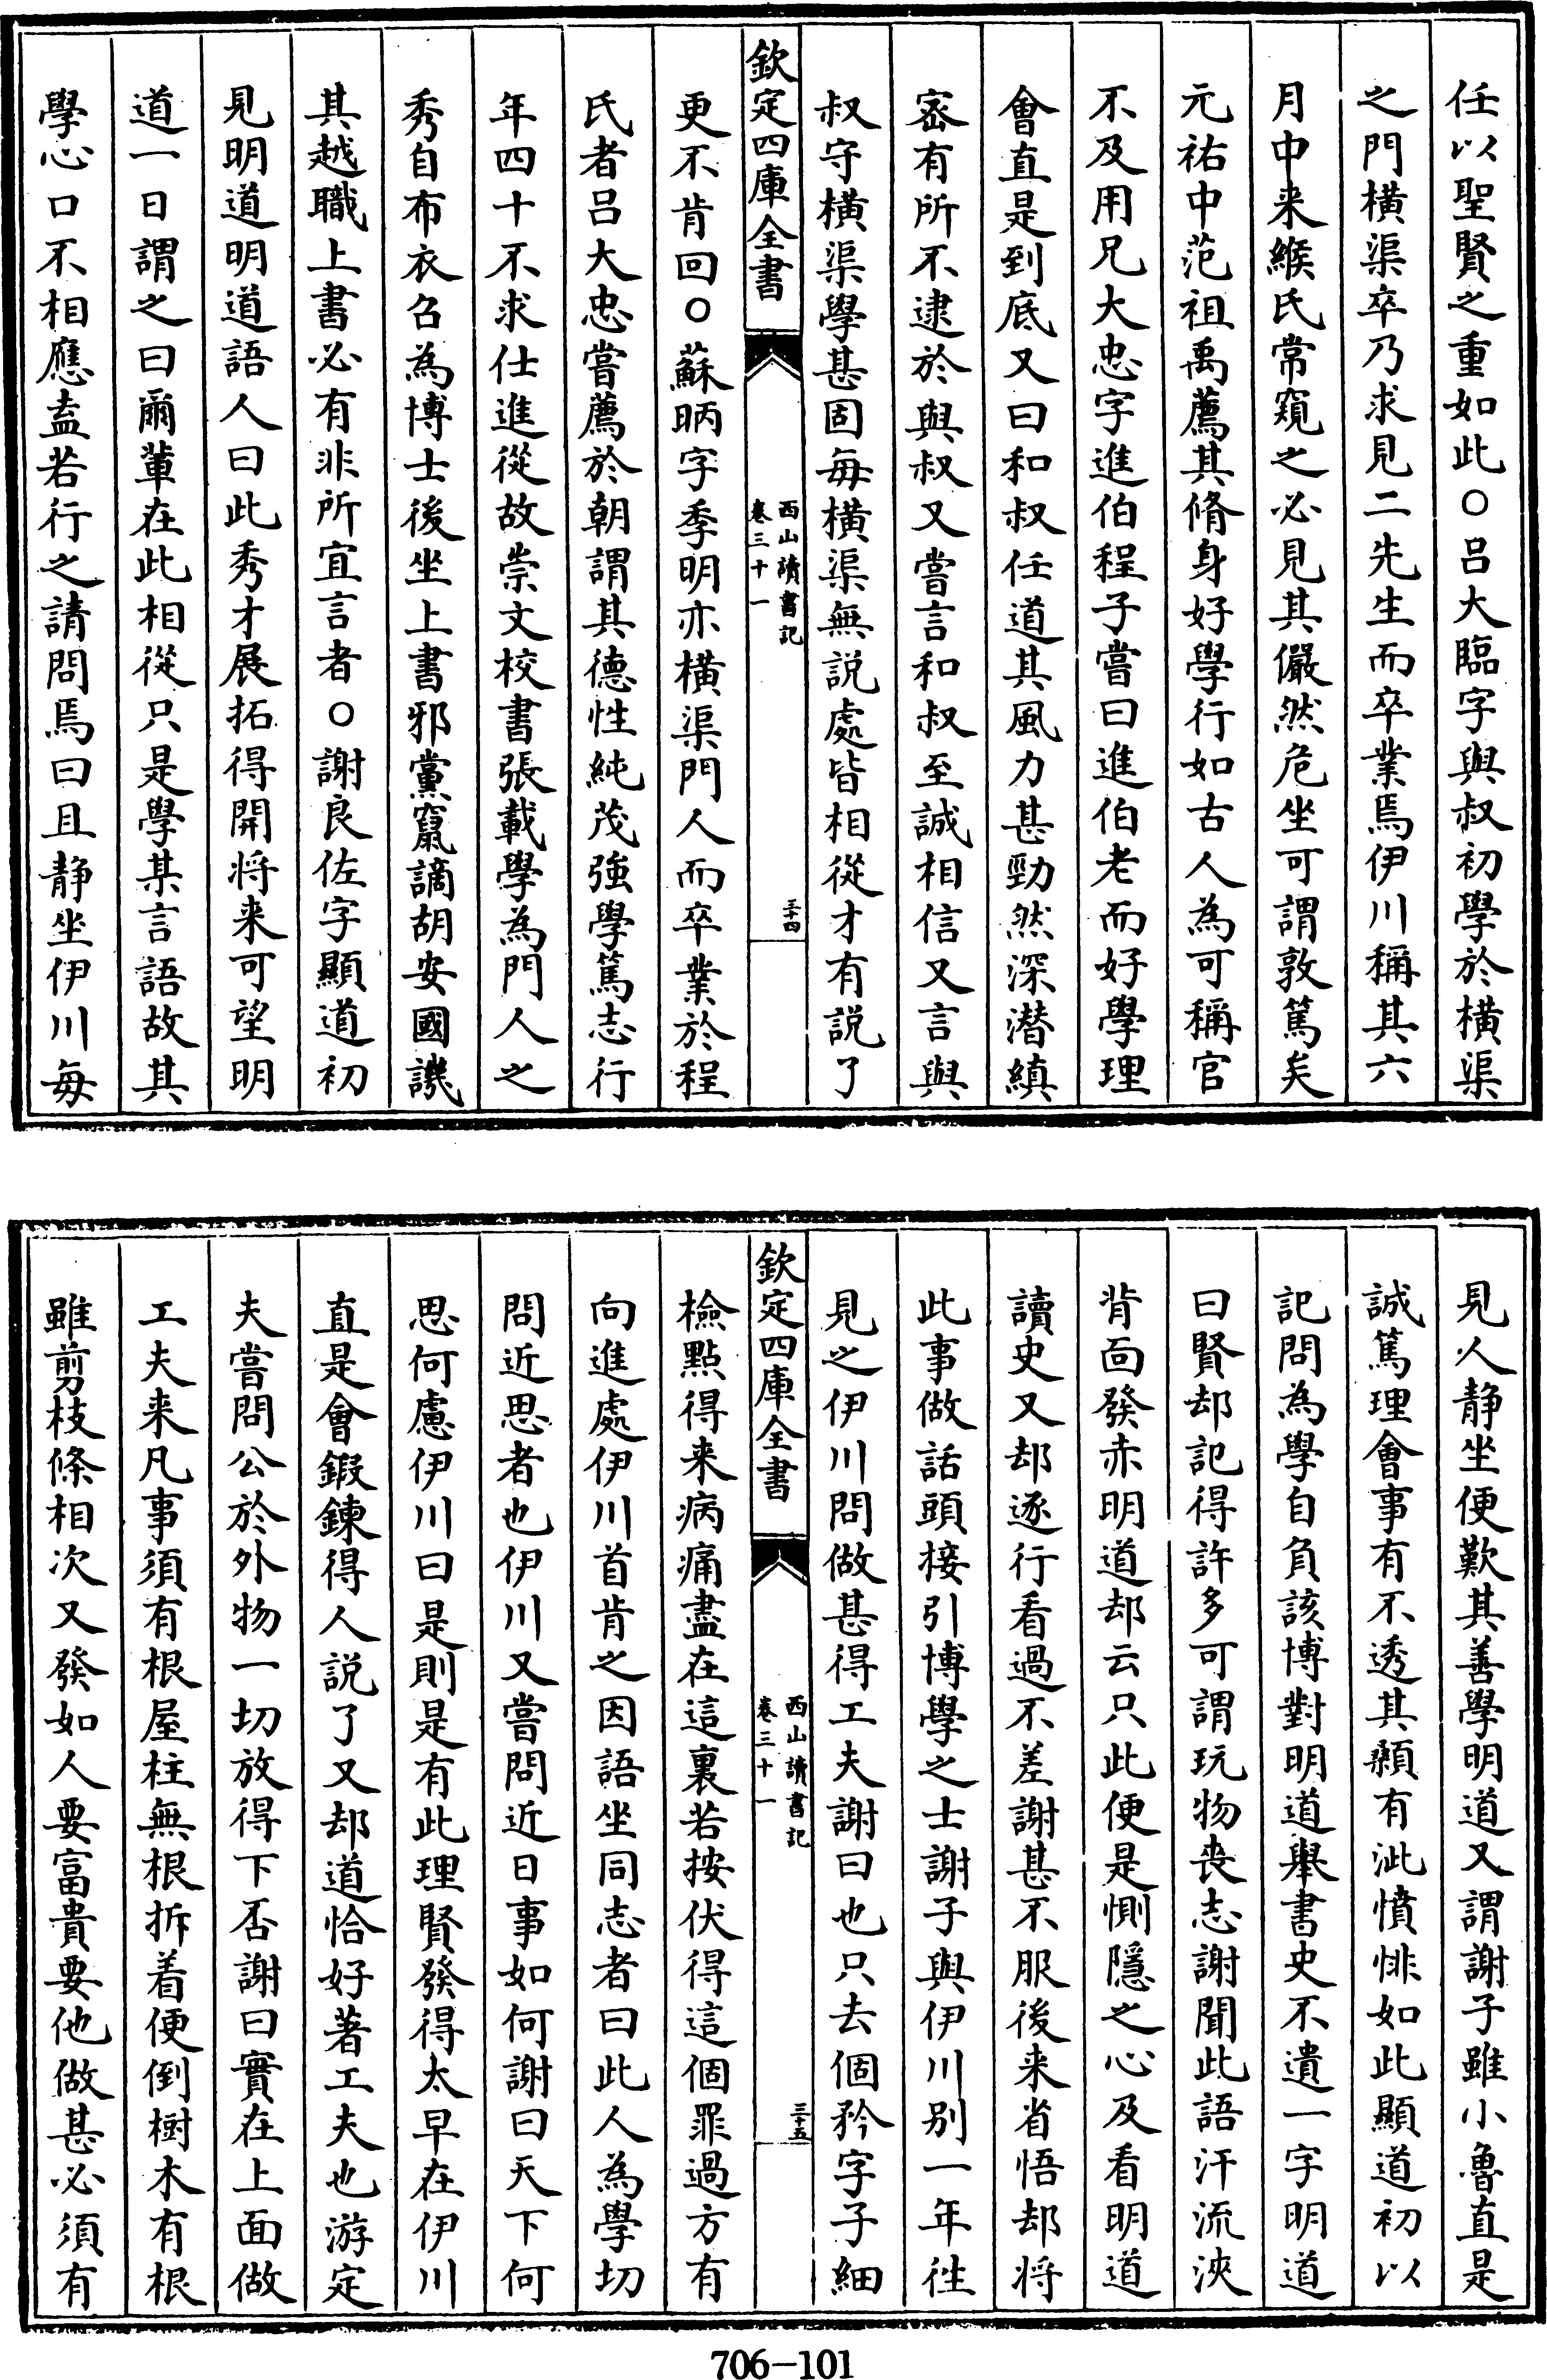 任以聖賢之重如此○吕大臨字與叔初學於橫渠
之門橫渠卒乃求見二先生而卒業焉伊川稱其六
月中来緱氏常窺之必見其儼然危坐可謂敦篤矣
元祐中范祖禹薦其脩身好學行如古人為可稱官
不及用兄大忠字進伯程子嘗曰進伯老而好學理
會直是到底又曰和叔任道其風力甚勁然深潜縝
宻有所不逮於與叔又嘗言和叔至誠相信又言與
叔守橫渠學甚固每橫渠無説處皆相從才有説了
欽定四庫全書
西山讀書記
卷三十一
三十四
更不肯回○蘇昞字季明亦橫渠門人而卒業於程
氏者吕大忠嘗薦於朝謂其德性純茂強學篤志行
年四十不求仕進從故崇文校書張載學為門人之
秀自布衣召為博士後坐上書邪黨竄謫胡安國譏
其越職上書必有非所宜言者○謝良佐字顯道初
見明道明道語人曰此秀才展拓得開将来可望明
道一日謂之曰爾軰在此相從只是學某言語故其
學心口不相應盍若行之請問焉曰且静坐伊川每
見人静坐便歎其善學明道又謂謝子雖小魯直是
誠篤理會事有不透其顙有泚憤悱如此顯道初以
記問為學自負該博對明道舉書史不遺一字明道
曰賢却記得許多可謂玩物喪志謝聞此語汗流浹
背面發赤明道却云只此便是惻隱之心及看明道
讀史又却逐行看過不差謝甚不服後来省悟却将
此事做話頭接引博學之士謝子與伊川别一年徃
見之伊川問做甚得工夫謝曰也只去個矜字子細
欽定四庫全書
西山讀書記
卷三十一
三十五
檢點得来病痛盡在這裏若按伏得這個罪過方有
向進處伊川首肯之因語坐同志者曰此人為學切
問近思者也伊川又嘗問近日事如何謝曰天下何
思何慮伊川曰是則是有此理賢發得太早在伊川
直是會鍜鍊得人説了又却道恰好著工夫也游定
夫嘗問公於外物一切放得下否謝曰實在上面做
工夫来凡事須有根屋柱無根拆着便倒樹木有根
雖剪枝條相次又發如人要富貴要他做甚必須有
706-101